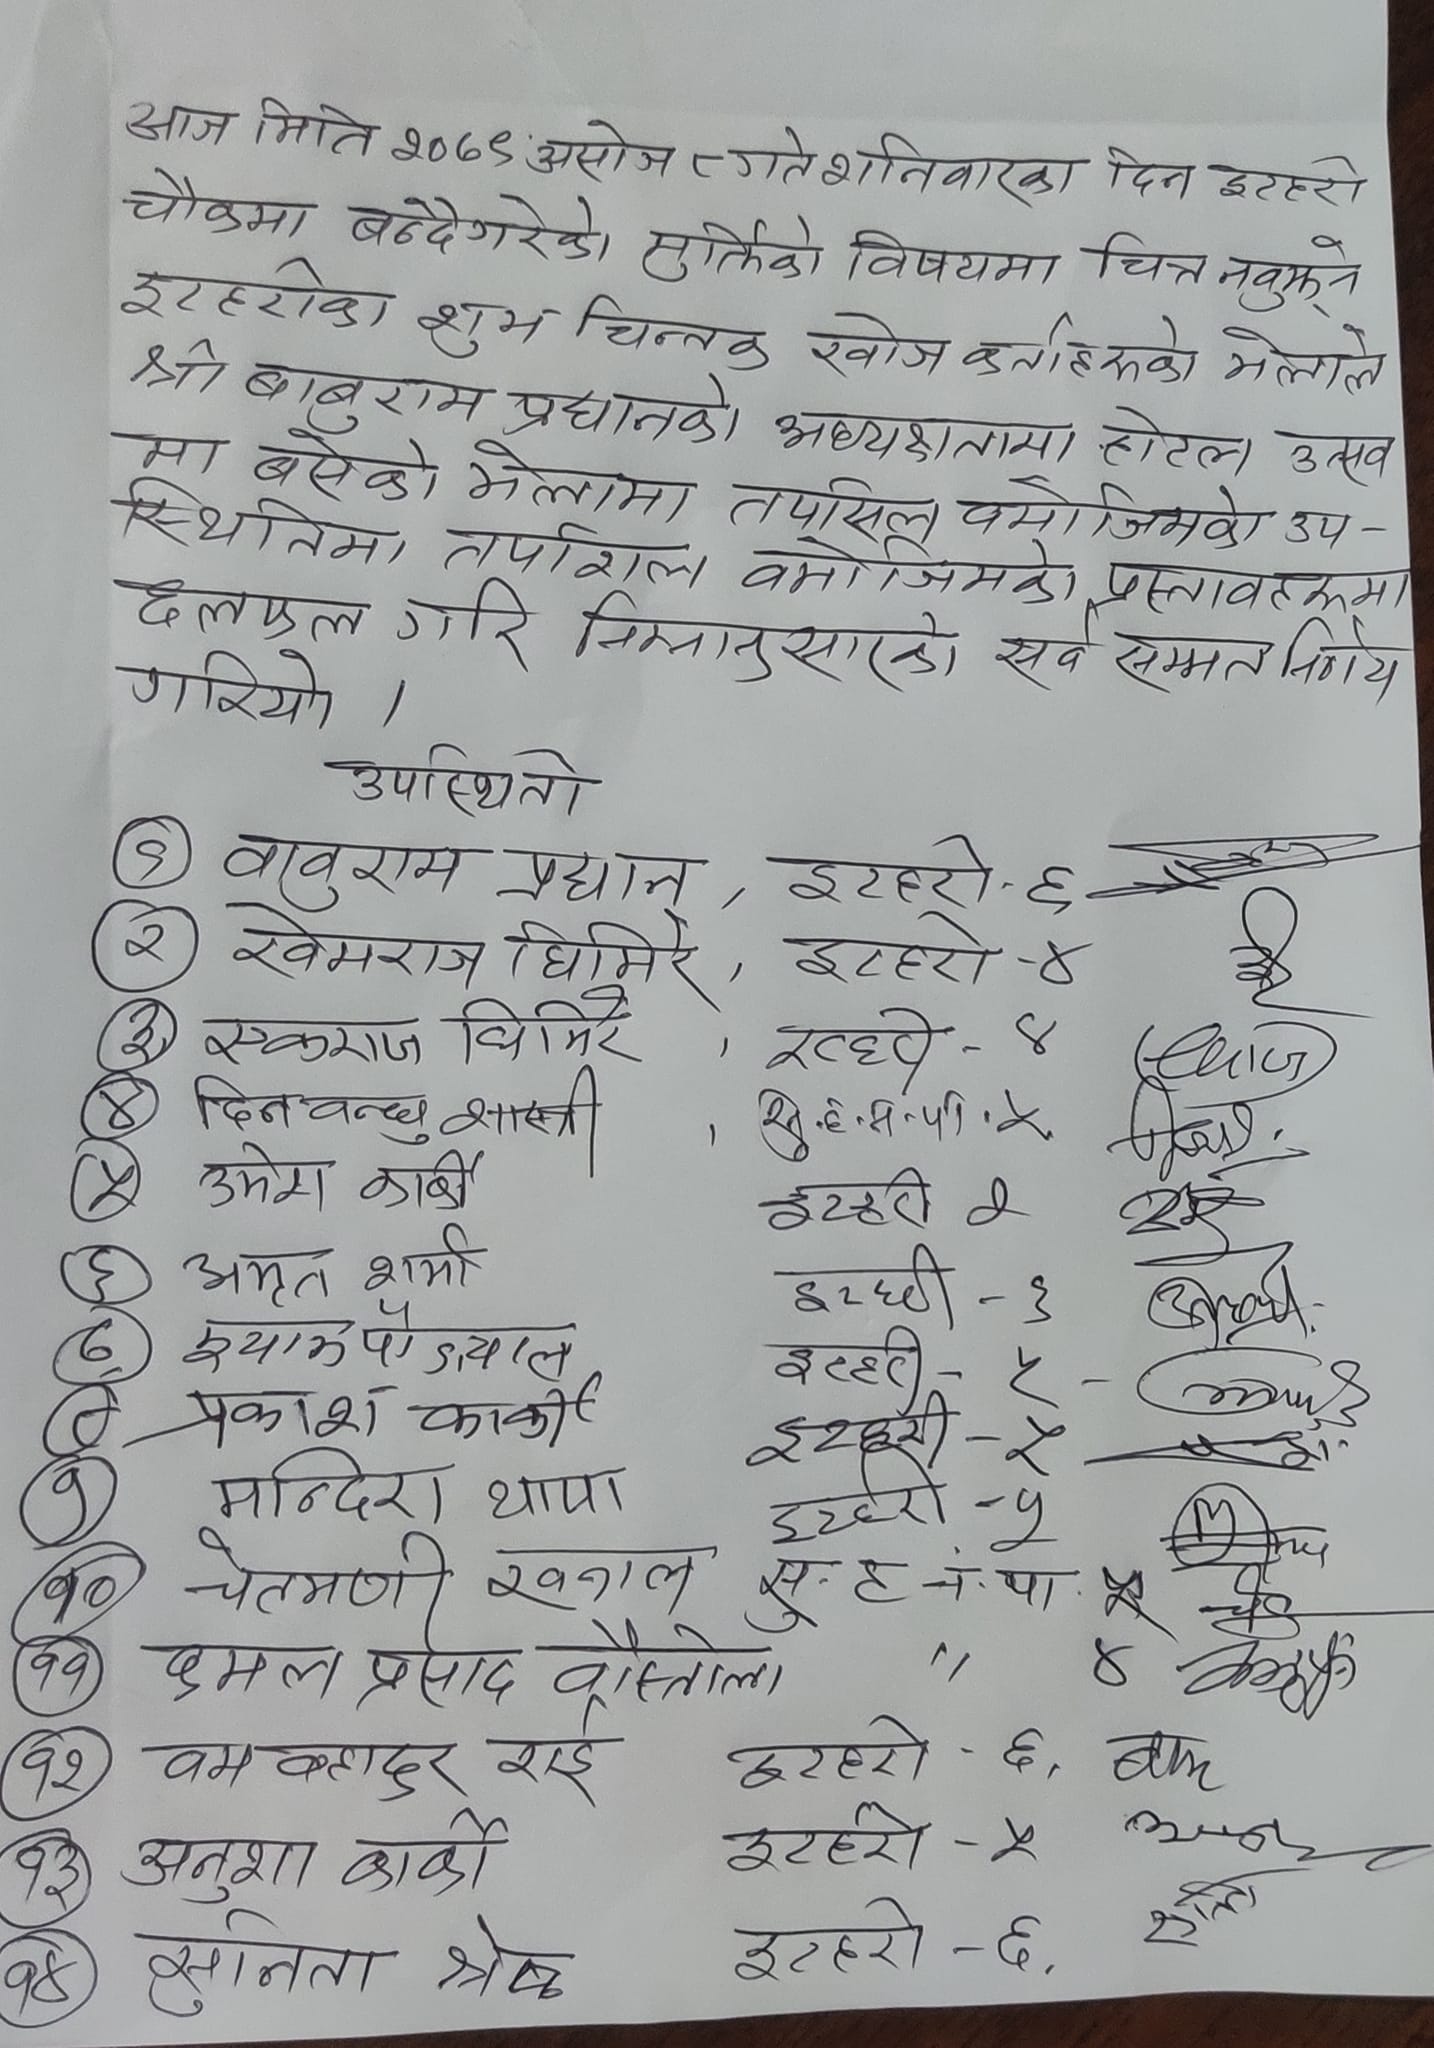 आज मिति २०७९ असोज ८ गते शनिवारका दिन इटहरी
चौकमा बन्दैगरेको मुर्तिको विषयमा चित्त नबुझ्ने
इटहरीका शुभ चिन्तक खोज कर्ताहरूको भेलाले
श्री बाबुराम प्रधानको अध्यक्षतामा होटल उत्सव
मा बसेको भेलामा तपसिल वमोजिमको उप-
स्थितिमा तपशिल वमोजिमको प्रस्तावहरूमा
छलफल गरि निम्नानुसारको सर्व सम्मत निर्णय
गरियो ।
उपस्थिती
१ बाबुराम प्रधान, इटहरी-६
२ खेमराज घिमिरे, इटहरी-४
३ एकराज घिमिरे, इटहरी-४
४ दिनबन्धु शास्त्री, सु.ह.न.पा.५
५ उमेश कार्की इटहरी २
६ अमृत शर्मा इटहरी-३
७ श्याम पौड्याल इटहरी-५
८ प्रकाश कार्की इटहरी-५
९ मन्दिरा थापा इटहरी-५
१० चेतमणी खनाल सु.ह.न.पा.
११ प्रसाद वास्तोला " ४
१२ वम बहादुर राई इटहरी-६. बम
१३ अनुशा कार्की इटहरी-५
१४ सुनिता श्रेष्ठ इटहरी-६.